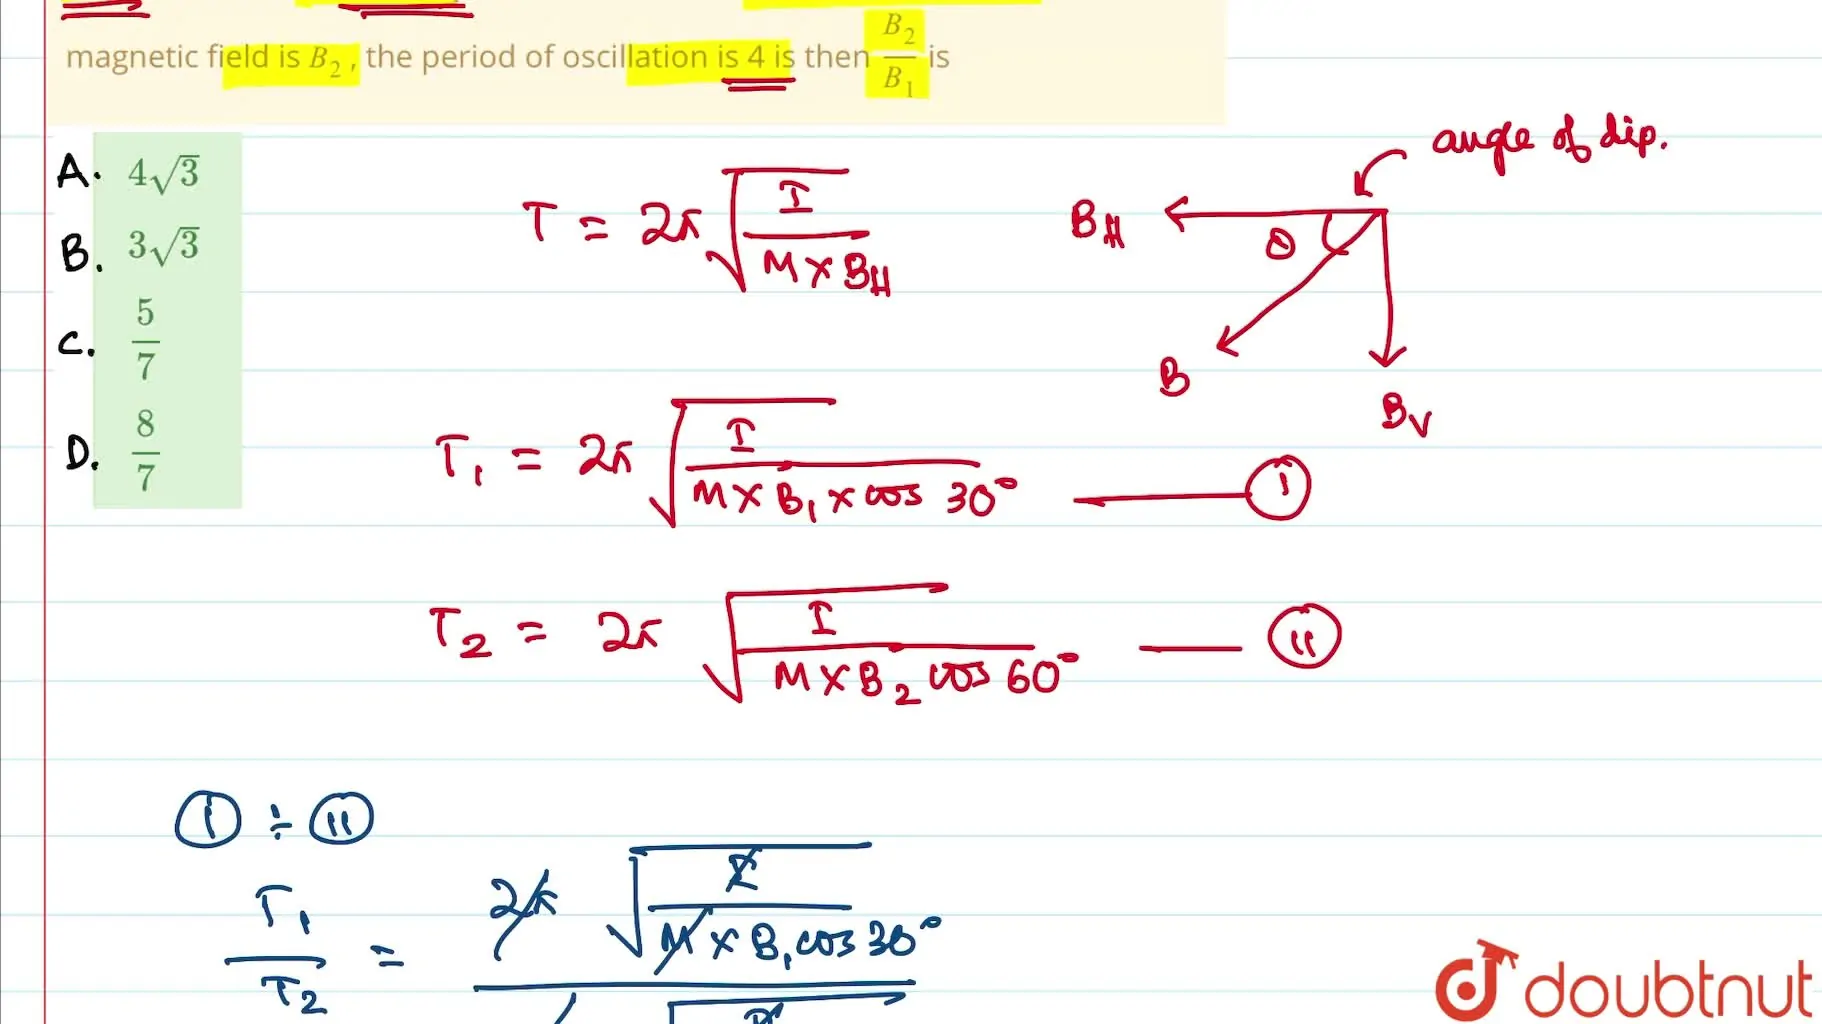 magnetic field is B₂, the period of oscillation is 4 is then B₂/B₁ is
A. 4√3
B. 3√3
C. 5/7
D. 8/7
angle of dip.
T = 2π √(I / M × B_H)
B_H
θ
B
B_V
T₁ = 2π √(I / M × B₁ × cos 30°) — (i)
T₂ = 2π √(I / M × B₂ cos 60°) — (ii)
(i) ÷ (ii)
T₁/T₂ = 2π √(I / M × B₁ cos 30°)
doubtnut